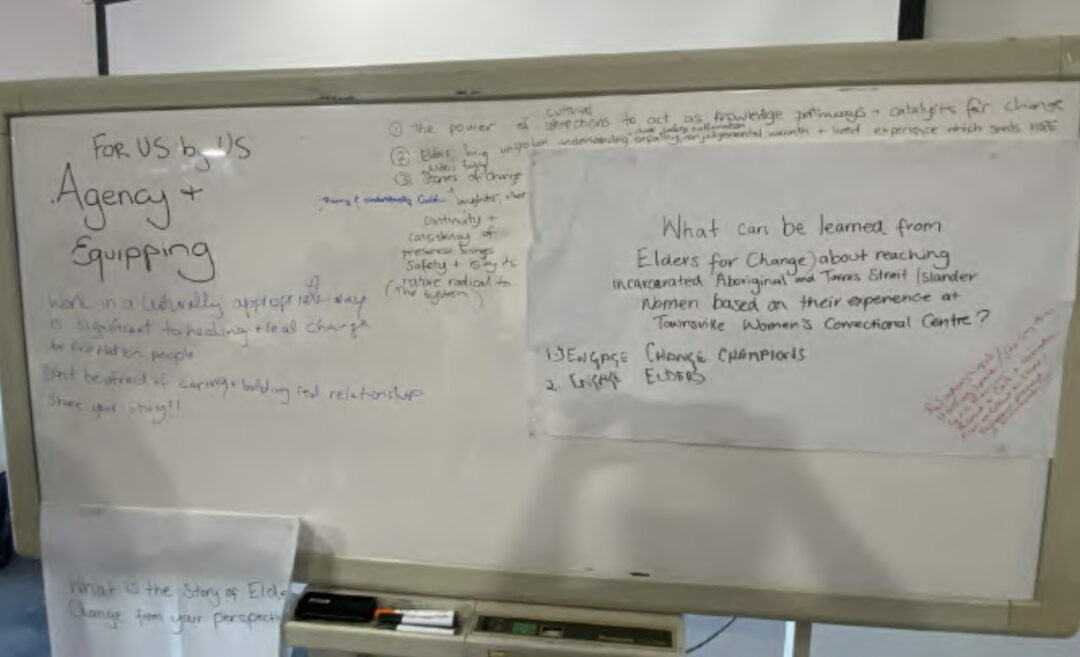 FOR US by US
Agency +
Equipping
Work in a Culturally appropriate way
is significant to healing + real change
for First Nation people
Don't be afraid of caring + building real relationships
Share your Story!!
cultural
① The power of connections to act as knowledge pathways + catalysts for change
② Elders bring unspoken understanding, empathy, non judgemental warmth + lived experience which seeds HOPE
③ Stories of change
laughter,
continuity +
consistency of
presence brings
Safety + is by its
nature radical to
(the system)
What can be learned from
Elders for Change) about reaching
incarcerated Aboriginal and Torres Strait Islander
Women based on their experience at
Townsville Women's Correctional Centre?
1. ENGAGE CHANGE CHAMPIONS
2. ENGAGE ELDERS
What is the Story of Elde
Change from your perspecti